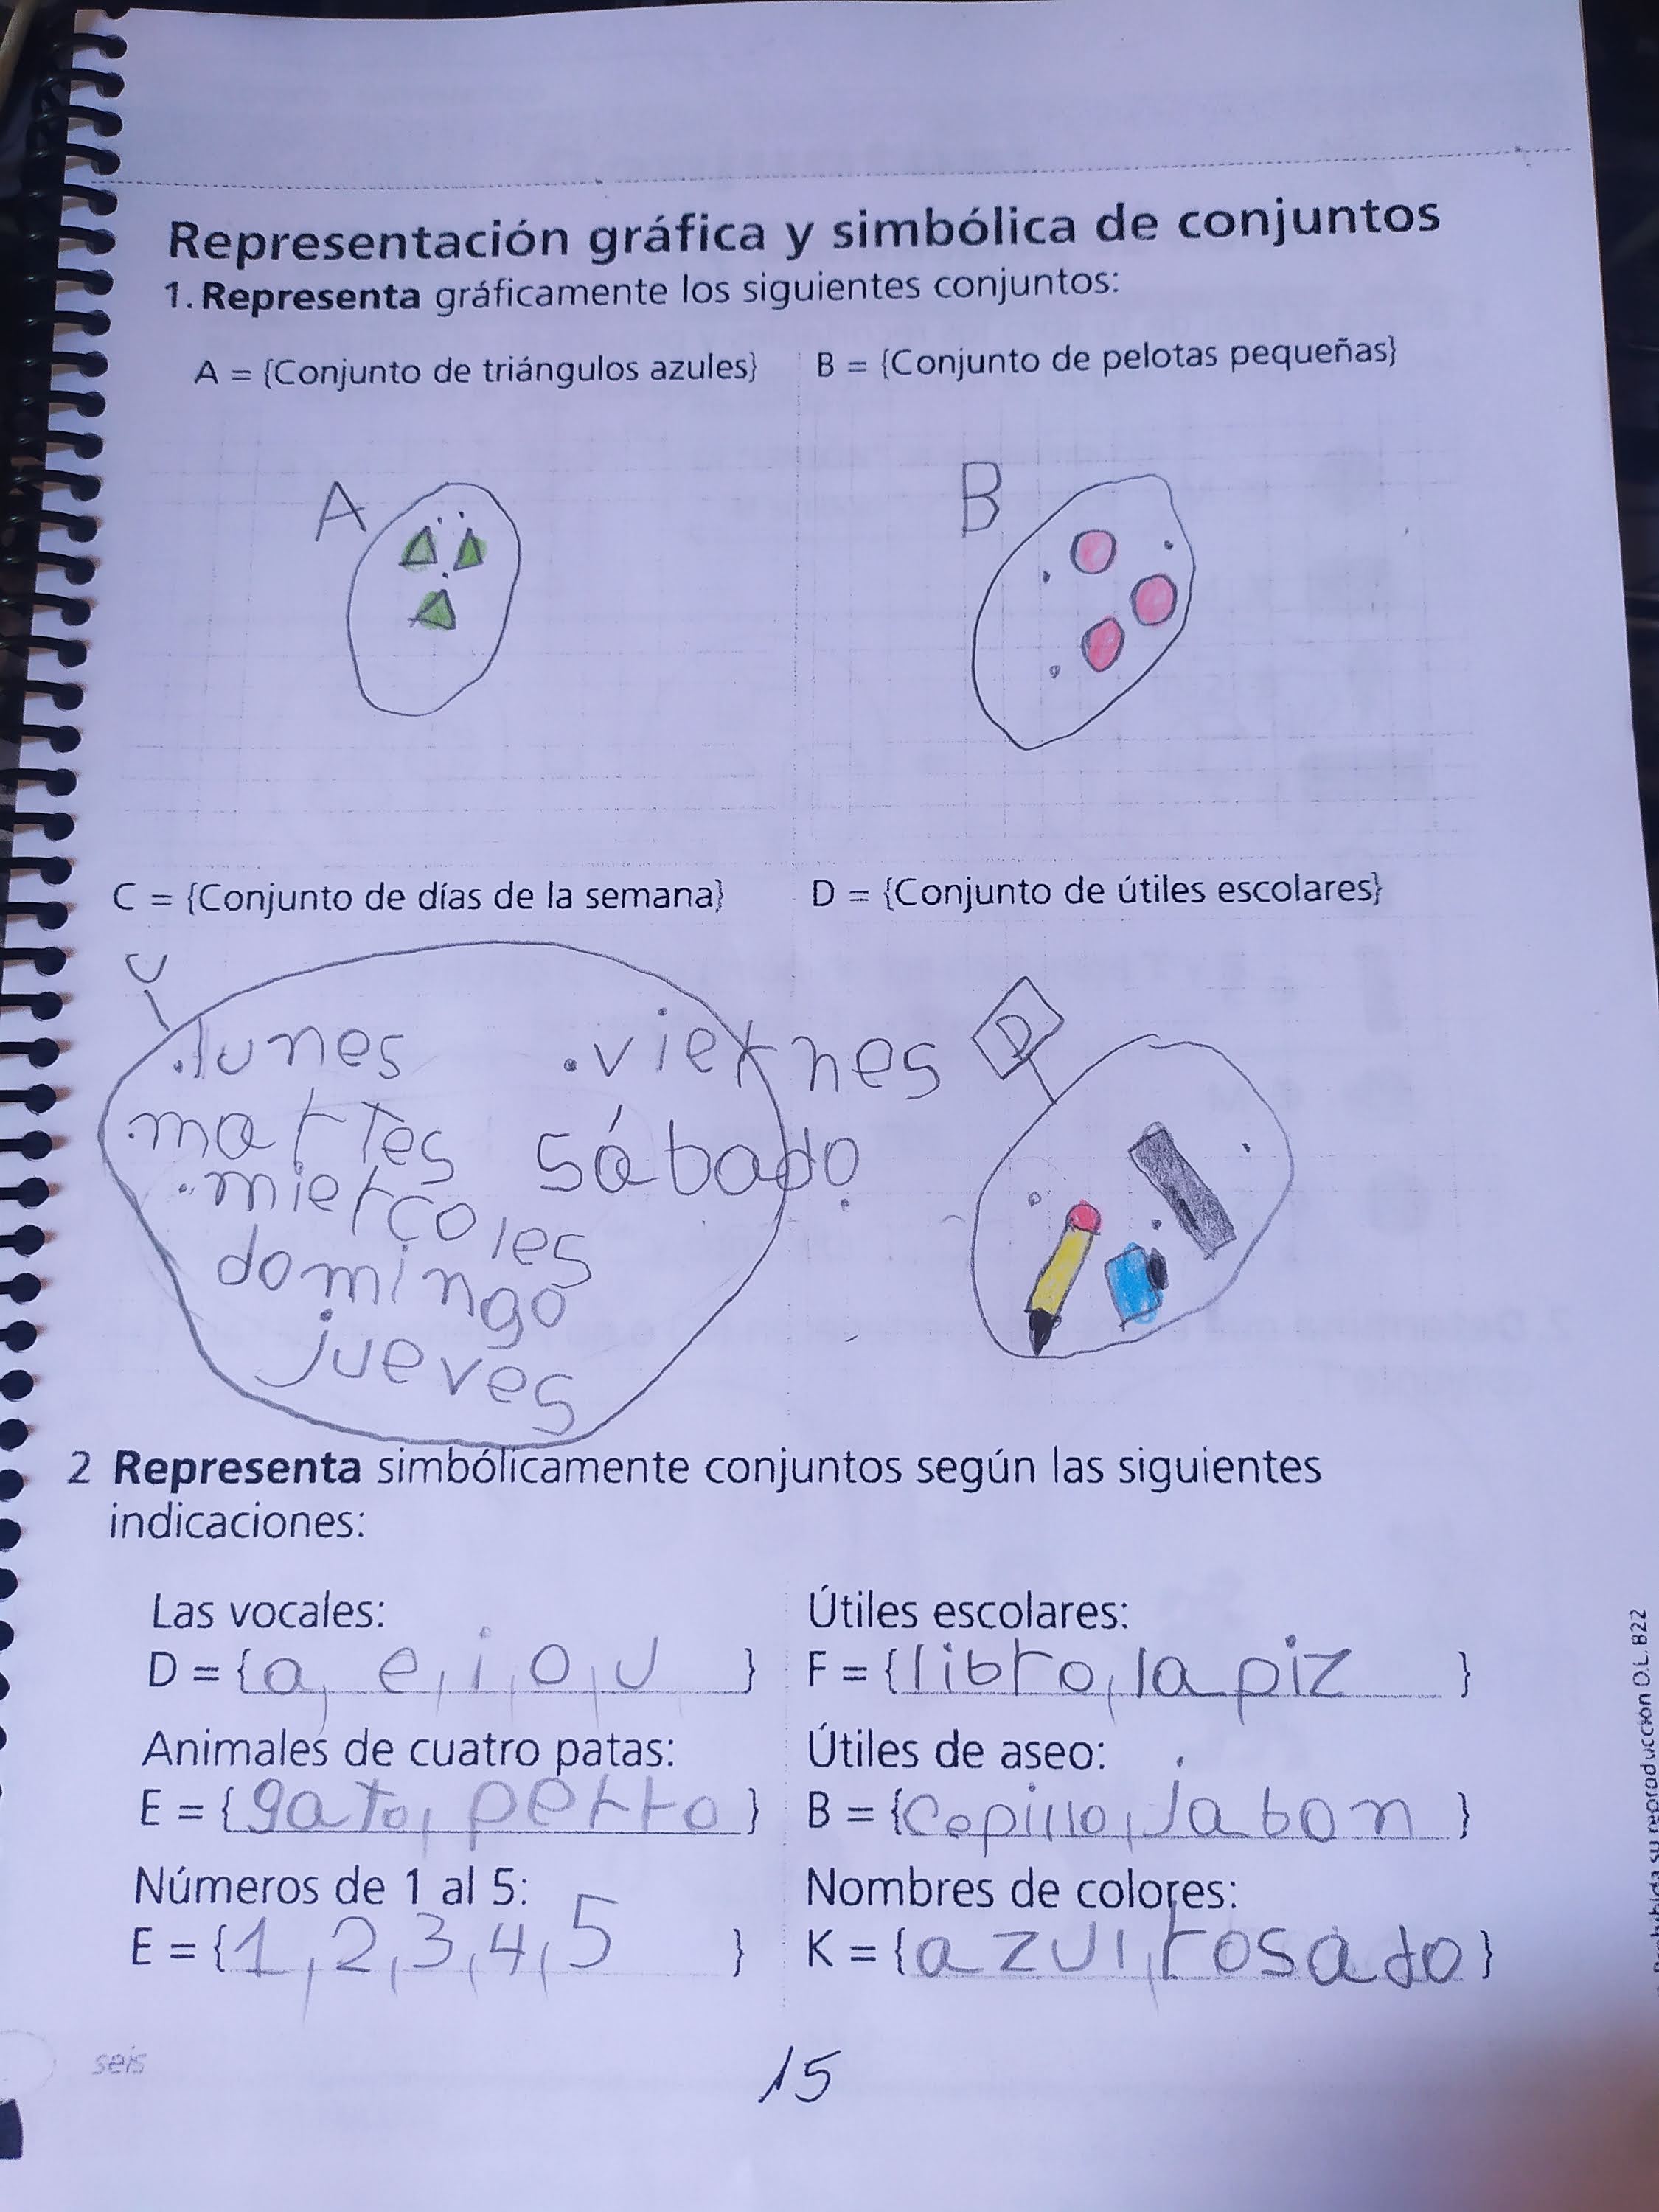 Representación gráfica y simbólica de conjuntos
1. Representa gráficamente los siguientes conjuntos:
A = {Conjunto de triángulos azules}
B = {Conjunto de pelotas pequeñas}
A
B
C = {Conjunto de días de la semana}
D = {Conjunto de útiles escolares}
.lunes .viernes
.martes sábado.
.miercoles
domingo
jueves
D
2 Representa simbólicamente conjuntos según las siguientes
indicaciones:
Las vocales:
D = {a, e, i, o, u}
Útiles escolares:
F = {libro, lapiz}
Animales de cuatro patas:
E = {gato, perro}
Útiles de aseo:
B = {Cepillo, jabon}
Números de 1 al 5:
E = {1, 2, 3, 4, 5}
Nombres de colores:
K = {azul, rosado}
seis
15
su reproducción D.L. 822